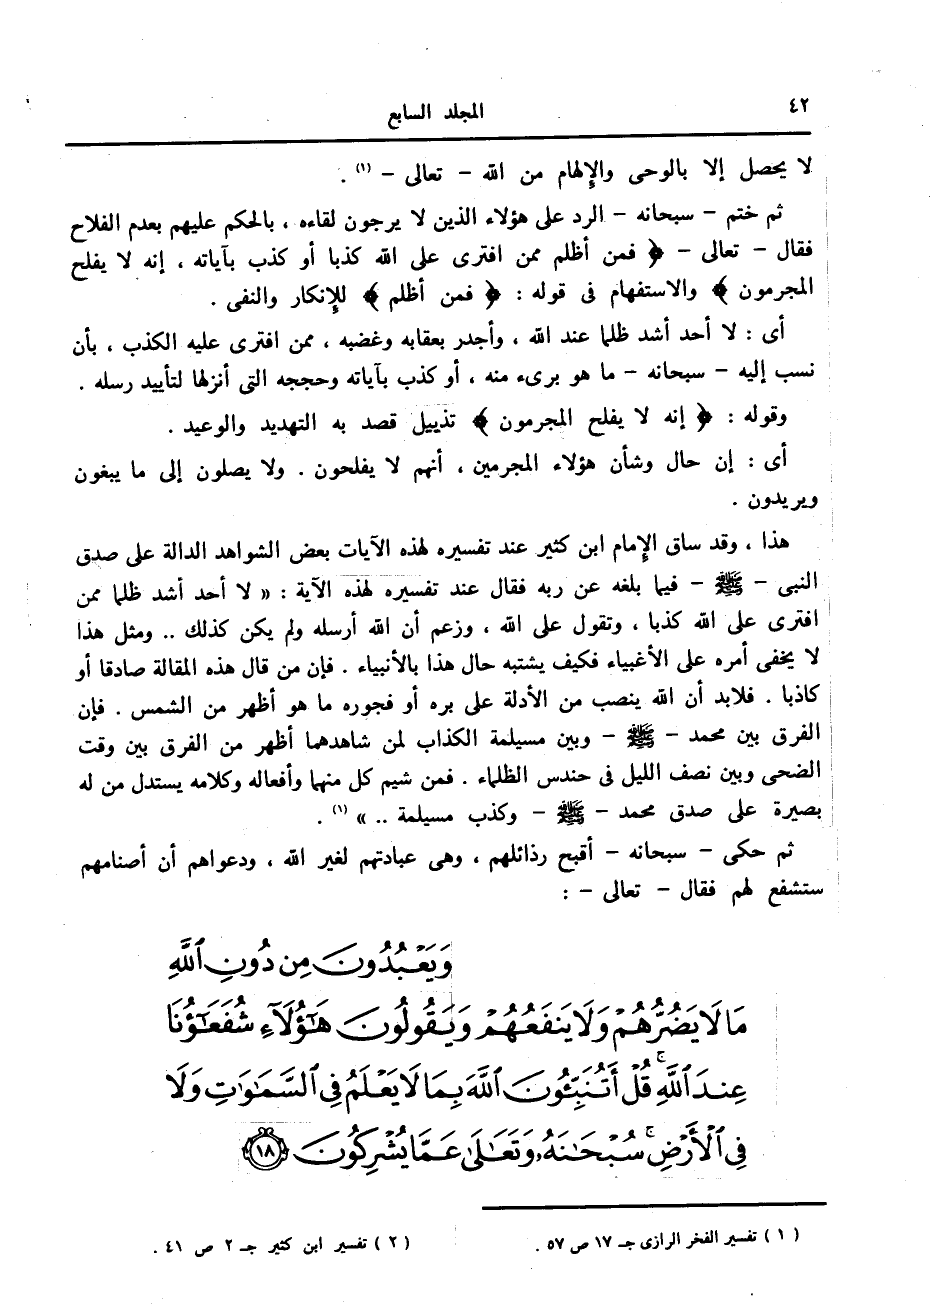 ٤٢
المجلد السابع
لا يحصل إلا بالوحى والإلهام من الله – تعالى – (١) .
ثم ختم – سبحانه – الرد على هؤلاء الذين لا يرجون لقاءه ، بالحكم عليهم بعدم الفلاح
فقال – تعالى – ﴿ فمن أظلم ممن افترى على الله كذبا أو كذب بآياته ، إنه لا يفلح
المجرمون ﴾ والاستفهام فى قوله : ﴿ فمن أظلم ﴾ للإنكار والنفى .
أى : لا أحد أشد ظلما عند الله ، وأجدر بعقابه وغضبه ، ممن افترى عليه الكذب ، بأن
نسب إليه – سبحانه – ما هو برىء منه ، أو كذب بآياته وحججه التى أنزلها لتأييد رسله .
وقوله : ﴿ إنه لا يفلح المجرمون ﴾ تذييل قصد به التهديد والوعيد .
أى : إن حال وشأن هؤلاء المجرمين ، أنهم لا يفلحون . ولا يصلون إلى ما يبغون
ويريدون .
هذا ، وقد ساق الإمام ابن كثير عند تفسيره لهذه الآيات بعض الشواهد الدالة على صدق
النبى – ﷺ – فيما بلغه عن ربه فقال عند تفسيره لهذه الآية : « لا أحد أشد ظلما ممن
افترى على الله كذبا ، وتقول على الله ، وزعم أن الله أرسله ولم يكن كذلك .. ومثل هذا
لا يخفى أمره على الأغبياء فكيف يشتبه حال هذا بالأنبياء . فإن من قال هذه المقالة صادقا أو
كاذبا . فلابد أن الله ينصب من الأدلة على بره أو فجوره ما هو أظهر من الشمس . فإن
الفرق بين محمد – ﷺ – وبين مسيلمة الكذاب لمن شاهدهما أظهر من الفرق بين وقت
الضحى وبين نصف الليل فى حندس الظلماء . فمن شيم كل منهما وأفعاله وكلامه يستدل من له
بصيرة على صدق محمد – ﷺ – وكذب مسيلمة .. » (١) .
ثم حكى – سبحانه – أقبح رذائلهم ، وهى عبادتهم لغير الله ، ودعواهم أن أصنامهم
ستشفع لهم فقال – تعالى – :
وَيَعْبُدُونَ مِن دُونِ ٱللَّهِ
مَا لَا يَضُرُّهُمْ وَلَا يَنفَعُهُمْ وَيَقُولُونَ هَٰٓؤُلَآءِ شُفَعَٰٓؤُنَا
عِندَ ٱللَّهِ ۚ قُلْ أَتُنَبِّـُٔونَ ٱللَّهَ بِمَا لَا يَعْلَمُ فِى ٱلسَّمَٰوَٰتِ وَلَا
فِى ٱلْأَرْضِ ۚ سُبْحَٰنَهُۥ وَتَعَٰلَىٰ عَمَّا يُشْرِكُونَ ١٨
( ١ ) تفسير الفخر الرازى جـ ١٧ ص ٥٧ .
( ٢ ) تفسير ابن كثير جـ ٢ ص ٤١ .